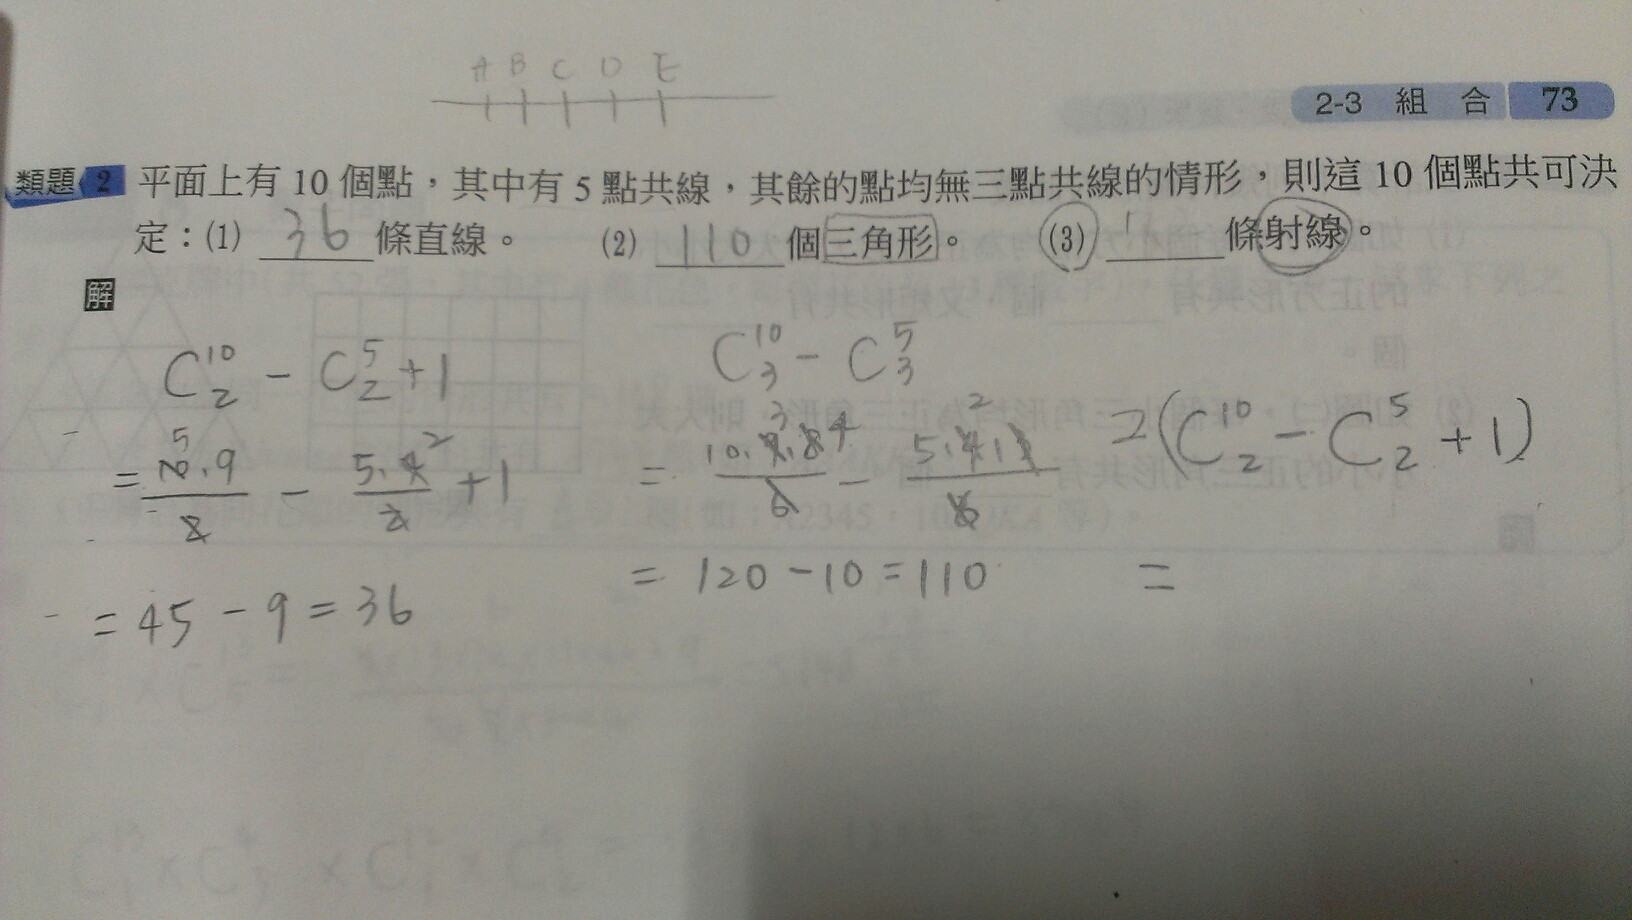 A B C D E
2-3 組 合 73
類題 2 平面上有 10 個點，其中有 5 點共線，其餘的點均無三點共線的情形，則這 10 個點共可決
定：(1) 36 條直線。 (2) 110 個三角形。 (3) 條射線。
解
C₂¹⁰ - C₂⁵ + 1
= 10.9/2 - 5.4/2 + 1
= 45 - 9 = 36
C₃¹⁰ - C₃⁵
= 10.9.8/6 - 5.4.3/6
= 120 - 10 = 110
2(C₂¹⁰ - C₂⁵ + 1)
=